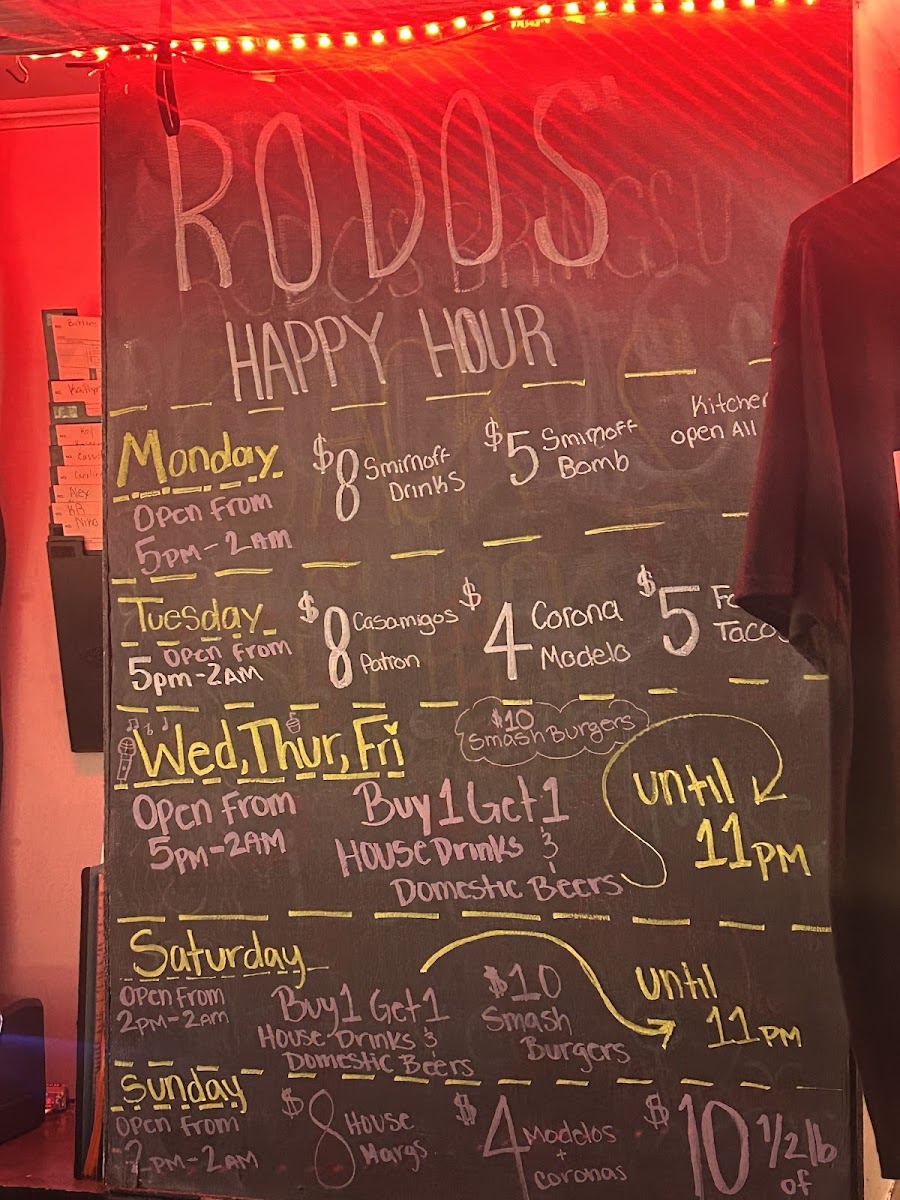 RODOS'
RODOS BRINGS U
HAPPY HOUR
Monday
Open From
5pm-2am
$8 Smirnoff
Drinks
$5 Smirnoff
Bomb
Kitchen
open All
Tuesday
Open From
5pm-2am
$8 Casamigos
Patron
$4 Corona
Modelo
$5
Tacos
Wed, Thur, Fri
Open From
5pm-2am
$10
Smash Burgers
Buy 1 Get 1
House Drinks &
Domestic Beers
until
11pm
Saturday
Open From
2pm-2am
Buy 1 Get 1
House Drinks &
Domestic Beers
$10
Smash
Burgers
until
11pm
Sunday
Open From
2pm-2am
$8 House
Margs
$4 Modelos
+
coronas
$10 1/2 lb
of
Alex
KB
Niko